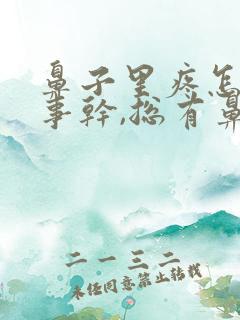 鼻子里疼怎
事幹,总有鼻
二一三二
未经同意禁止转载